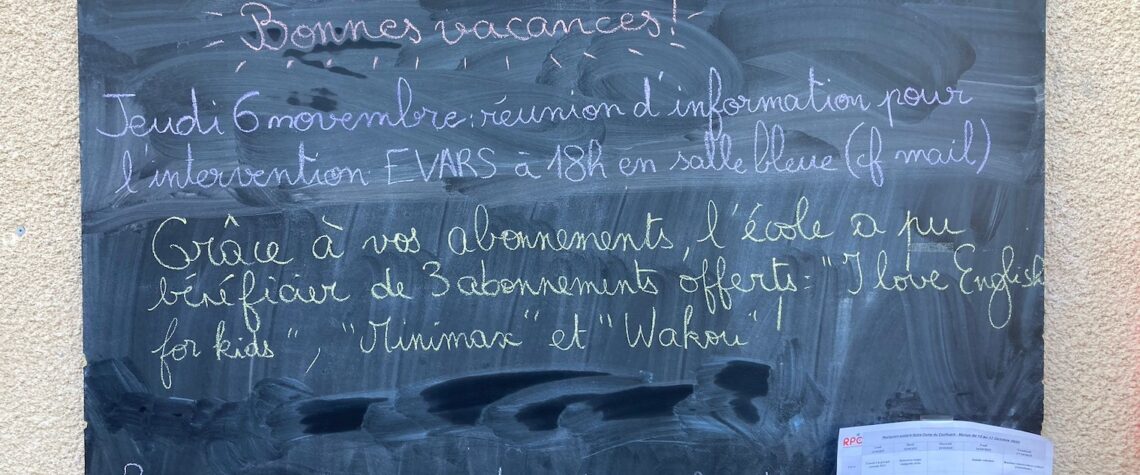 Bonnes vacances!
Jeudi 6 novembre: réunion d'information pour
l'intervention EVARS à 18h en salle bleue (cf mail)
Grâce à vos abonnements, l'école a pu
bénéficier de 3 abonnements offerts: "I love English
for kids", "Minimax" et "Wakou"!
RPC